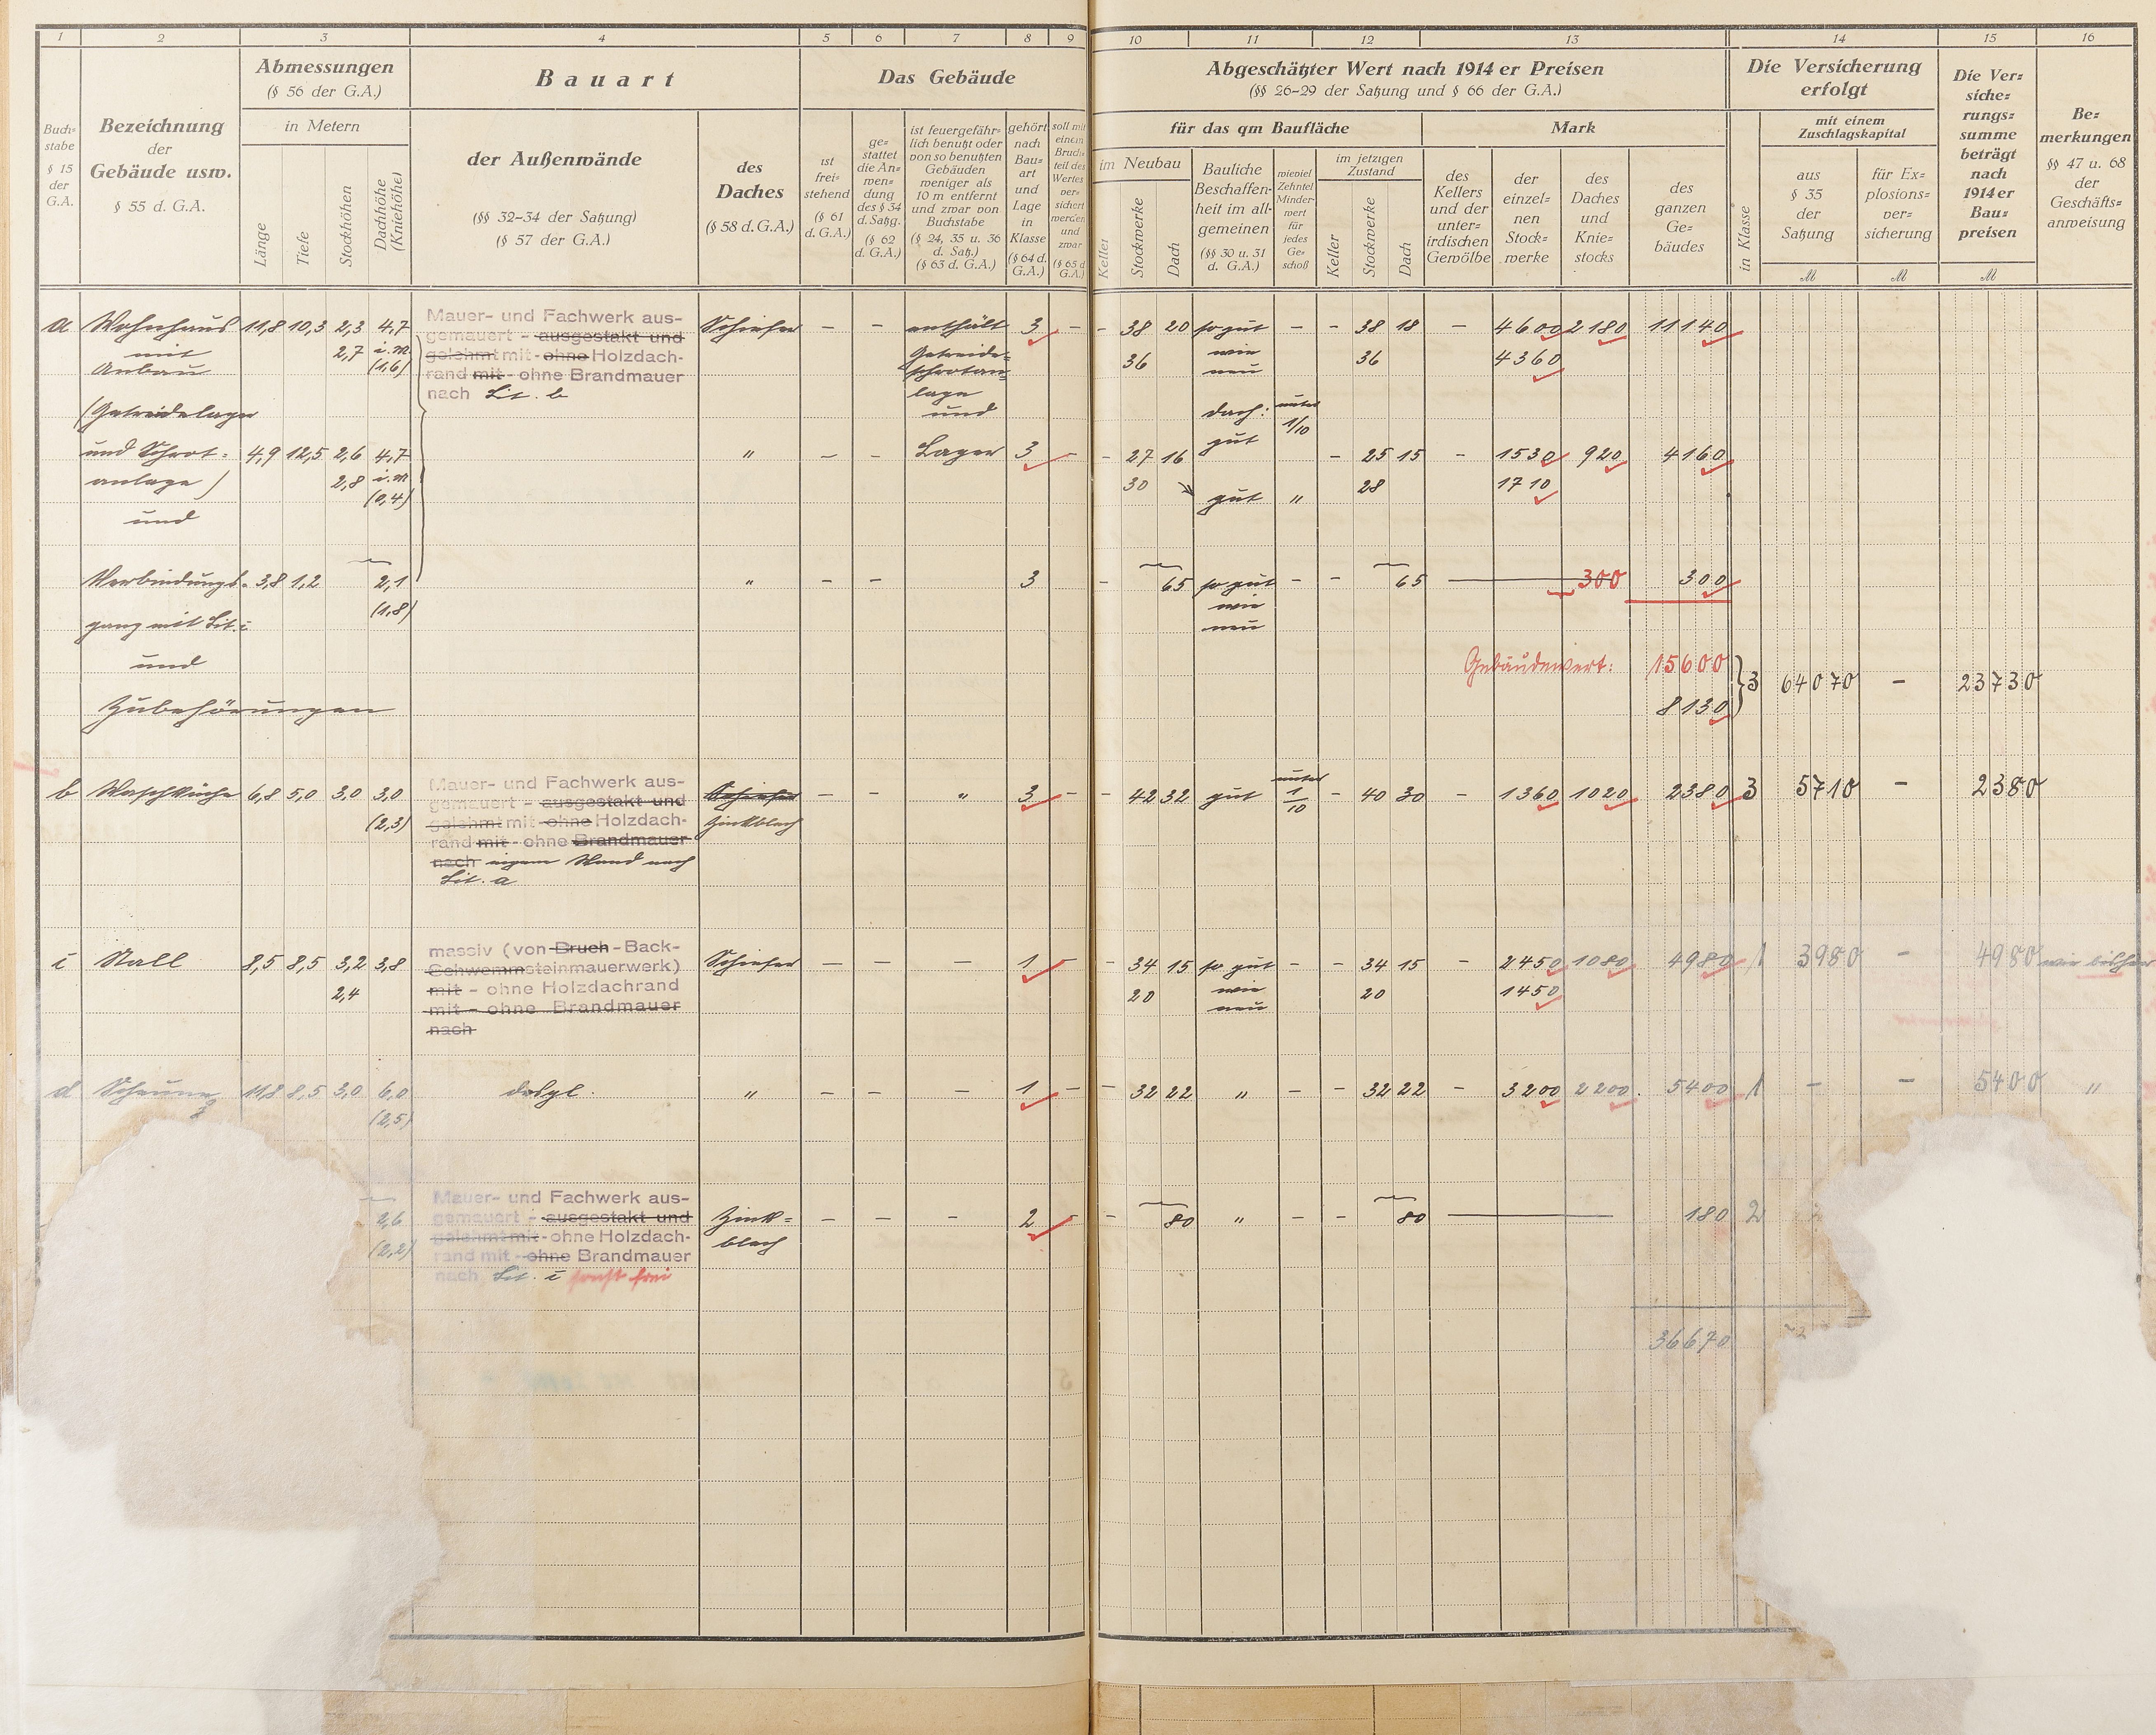 1 2 3 4 5 6 7 8 9 10 11 12 13 14 15 16
Buch=
stabe
§ 15
der
G.A.
Bezeichnung
der
Gebäude usw.
§ 55 d. G.A.
Abmessungen
(§ 56 der G.A.)
in Metern
Länge
Tiefe
Stockhöhen
Dachhöhe
(Kniehöhe)
Bauart
der Außenwände
(§§ 32–34 der Satzung)
(§ 57 der G.A.)
des
Daches
(§ 58 d. G.A.)
Das Gebäude
ist
frei=
stehend
(§ 61
d. G.A.)
ge=
stattet
die An=
wen=
dung
des § 34
d. Satzg.
(§ 62
d. G.A.)
ist feuergefähr=
lich benutzt oder
von so benutzten
Gebäuden
weniger als
10 m entfernt
und zwar von
Buchstabe
(§ 24, 35 u. 36
d. Satz.)
(§ 63 d. G.A.)
gehört
nach
Bau=
art
und
Lage
in
Klasse
(§ 64 d.
G.A.)
soll mit
einem
Bruch=
teil des
Wertes
ver=
sichert
werden
und
zwar
(§ 65 d.
G.A.)
Abgeschätzter Wert nach 1914 er Preisen
(§§ 26–29 der Satzung und § 66 der G.A.)
für das qm Baufläche
im Neubau
Keller
Stockwerke
Dach
Bauliche
Beschaffen=
heit im all=
gemeinen
(§§ 30 u. 31
d. G.A.)
wieviel
Zehntel
Minder=
wert
für
jedes
Ge=
schoß
im jetzigen
Zustand
Keller
Stockwerke
Dach
Mark
des
Kellers
und der
unter=
irdischen
Gewölbe
der
einzel=
nen
Stock=
werke
des
Daches
und
Knie=
stocks
des
ganzen
Ge=
bäudes
Die Versicherung
erfolgt
in Klasse
mit einem
Zuschlagskapital
aus
§ 35
der
Satzung
für Ex=
plosions=
ver=
sicherung
M M M
Die Ver=
siche=
rungs=
summe
beträgt
nach
1914 er
Bau=
preisen
Be=
merkungen
§§ 47 u. 68
der
Geschäfts=
anweisung
a Wohnhaus 11,8 10,3 2,3 4,7 Mauer- und Fachwerk aus- Schiefer – – enthält 3 – – 38 20 so gut – – 38 18 – 4600 2180 11140
gemauert - ausgestakt und
mit 2,7 i.M. gelehmt mit - ohne Holzdach- Getreide= 36 wie 36 4360
Anbau (1,6) rand mit - ohne Brandmauer schrotan= neu
nach Lit. b lage
(Getreidelager und Dach: unter
1/10
und Schrot= 4,9 12,5 2,6 4,7 " – – Lager 3 – – 27 16 gut – 25 15 – 1530 920 4160
anlage) 2,8 i.M. 30 gut " 28 1710
(0,4)
und
Verbindungs= 3,8 1,2 2,1 " – – 3 – 65 so gut – – 65 300 300
(1,8) wie
gang mit Lit. i neu
und Gebäudewert: 15600
3 64070 – 23730
Zubehörungen 8130
b Waschküche 6,8 5,0 3,0 3,0 Mauer- und Fachwerk aus- Schiefer – – " 3 – – 42 32 gut unter 1/10 – 40 30 – 1360 1020 2380 3 5710 – 2380
gemauert - ausgestakt und
(2,3) gelehmt mit - ohne Holzdach- Zinkblech
rand mit - ohne Brandmauer
nach eigene Wand nach
Lit. a
i Stall 8,5 8,5 3,2 3,8 massiv (von Bruch - Back- Schiefer – – – 1 – – 34 15 so gut – – 34 15 – 2450 1080 4980 1 3980 – 4980 wie bisher
Schwemmsteinmauerwerk)
2,4 mit - ohne Holzdachrand 20 wie 20 1450
mit - ohne Brandmauer neu
nach
d Scheune 11,8 8,5 3,0 6,0 desgl. " – – – 1 – – 32 22 " – – 32 22 – 3200 2200 5400 1 – – 5400 "
(2,5)
Mauer- und Fachwerk aus-
2,6 gemauert - ausgestakt und Zink= – – – 2 – – 80 " – – 80 180 2
(2,2) gelehmt mit - ohne Holzdach- blech
rand mit - ohne Brandmauer
nach Lit. i sonst frei
36670